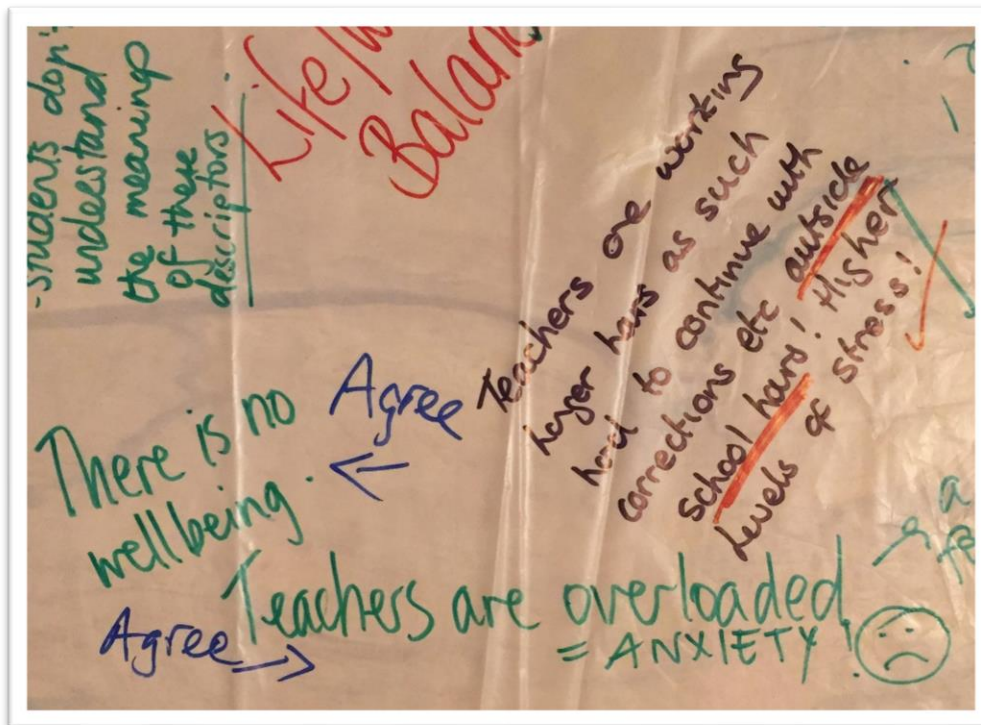 -students don't
understand
the meaning
of these
descriptors.
Life/
Balan
Teachers are working
longer hours as such
hard to continue with
corrections etc outside
school hours! Higher
Levels of stress!
There is no
wellbeing.
Agree
Teachers are overloaded!
= ANXIETY!
Agree
a